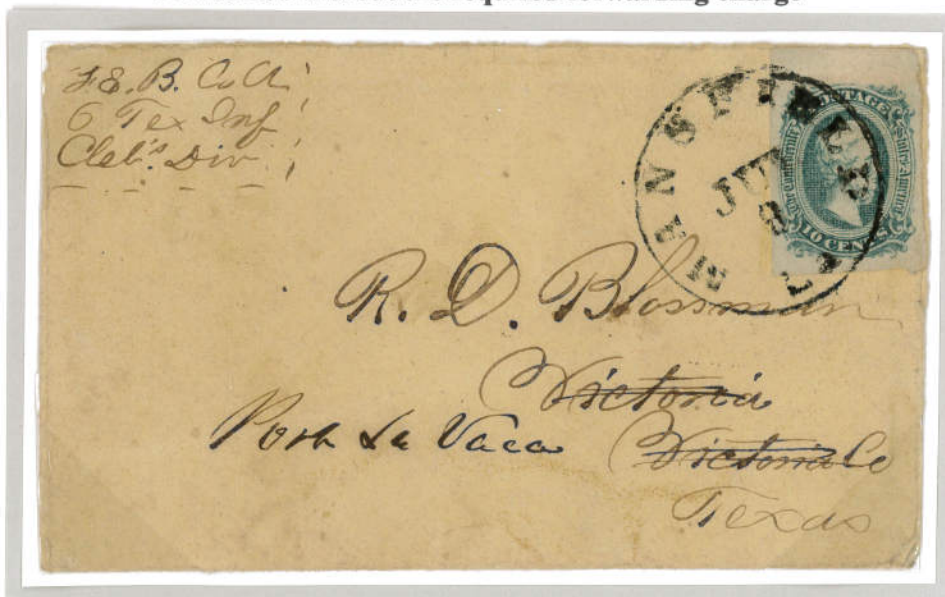 F. E. B. Co A
6 Tex Inf
Cleb's Div
MANSFIELD
JUN
8
POSTAGE
The Confederate States of America
10 CENTS
R. D. Blossman
Victoria
Port La Vaca Victoria Co
Texas